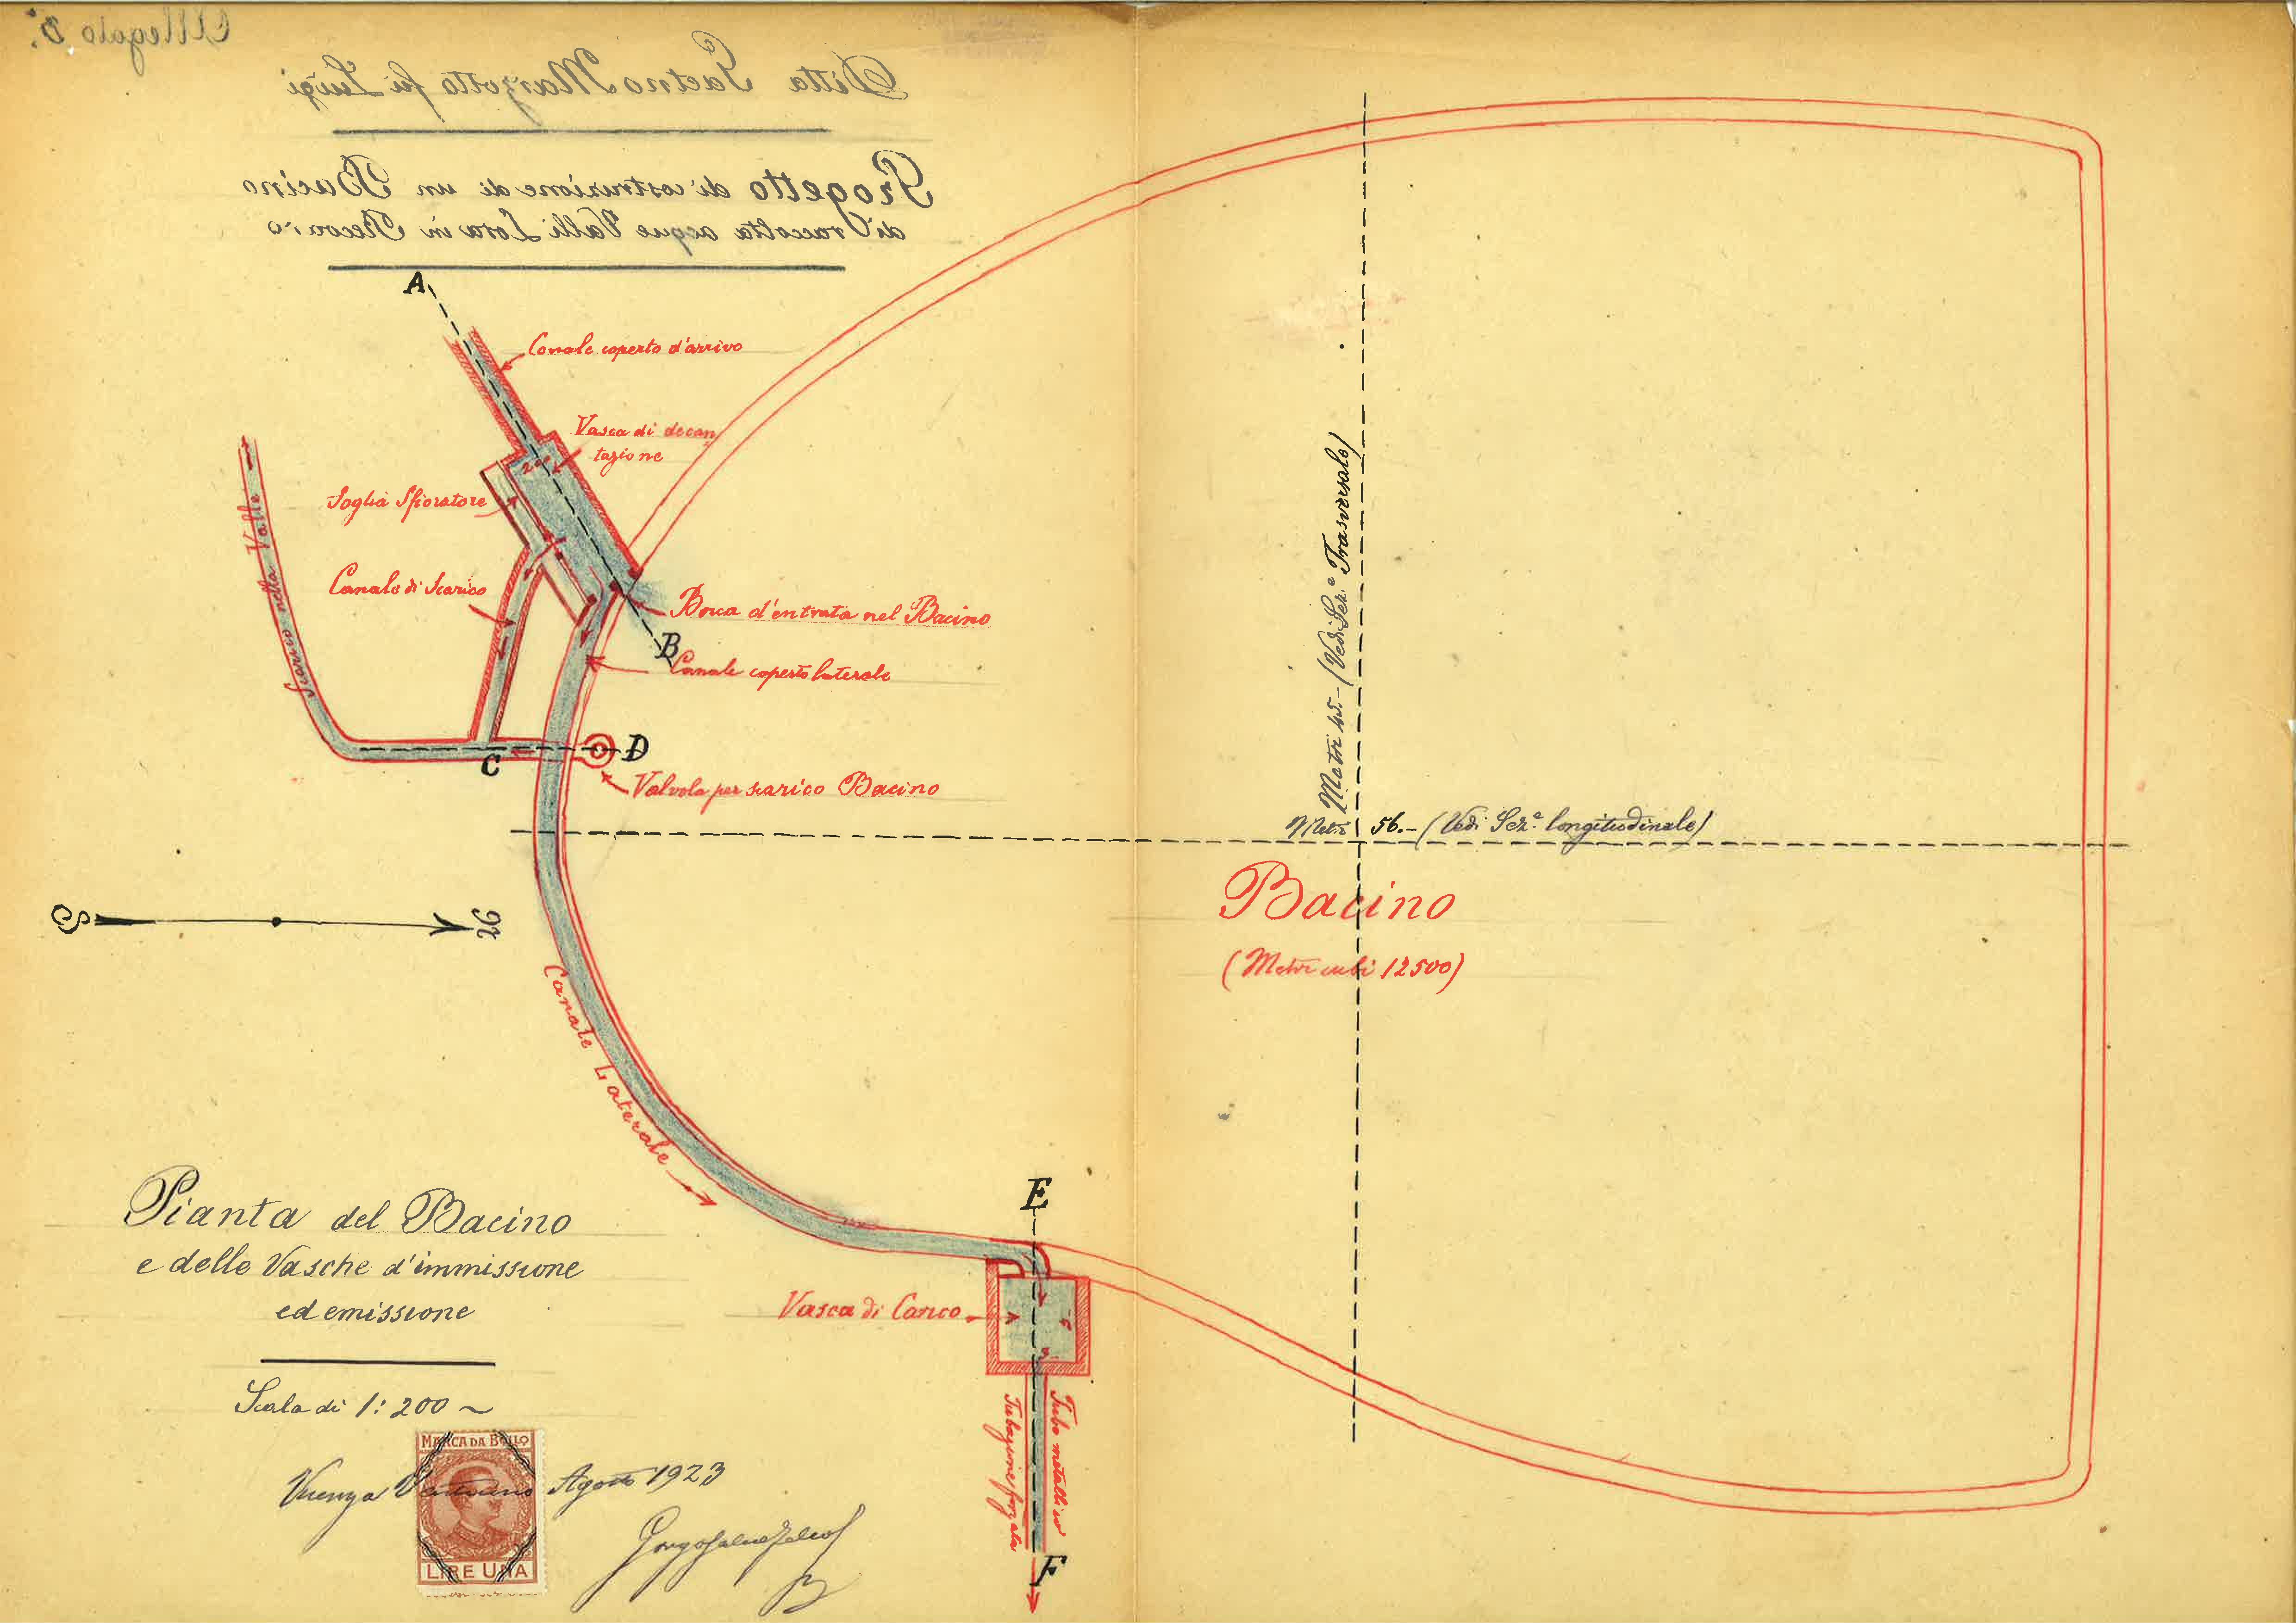 Allegato 3.
Ditta Gaetno Marzotto fu Luigi
Progetto di costruzione di un Bacino
di raccolta acque Valli Lora in Recoaro
A
Canale coperto d'arrivo
Vasca di decan
tazione
Soglia Sfioratore
Canale di Scarico
Scarico nella Valle
Bocca d'entrata nel Bacino
B
Canale coperto laterale
C
D
Valvola per scarico Bacino
Metri 45.- (Vedi Sez.e Trasversale)
Metri 56.- (Vedi Sez.e longitudinale)
Bacino
(Metri cubi 12500)
S
N
Canale Laterale
E
Vasca di Carico
Tubo metallico
Tubazione forzata
F
Pianta del Bacino
e delle Vasche d'immissione
ed emissione
Scala di 1:200
Agosto 1923
MARCA DA BOLLO
LIRE UNA